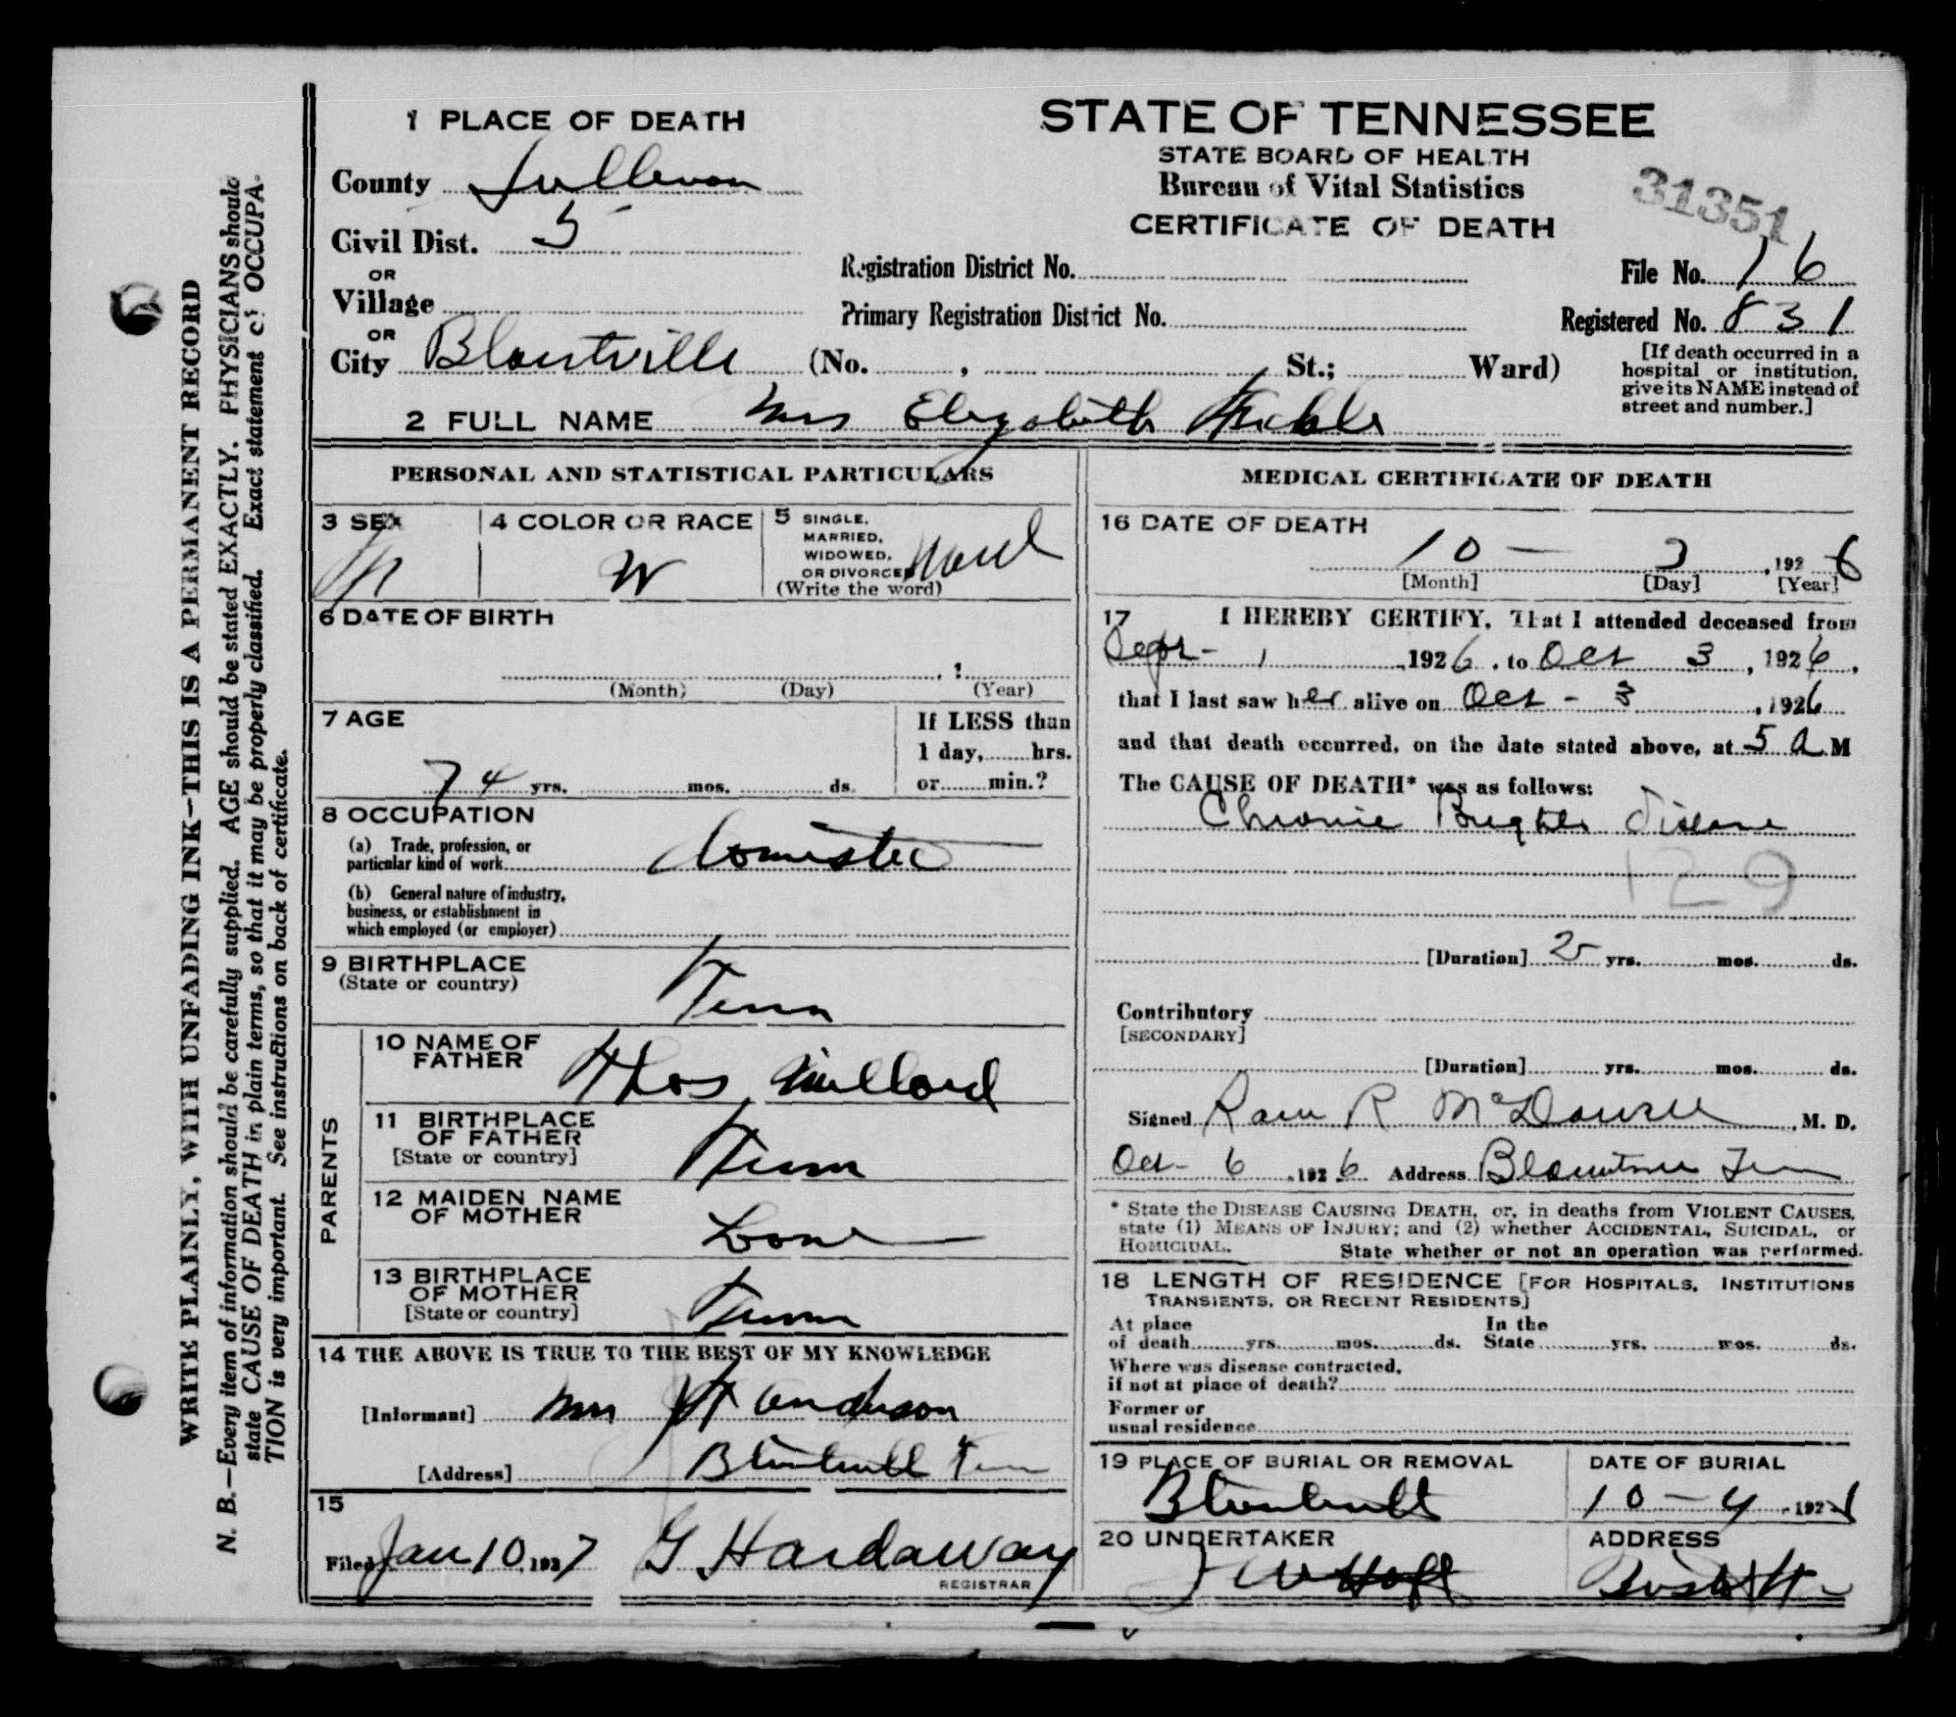 1 PLACE OF DEATH
County Sullivan
Civil Dist. 5
OR
Village
OR
City Blountville (No. , St.; Ward)
2 FULL NAME Mrs Elizabeth
STATE OF TENNESSEE
STATE BOARD OF HEALTH
Bureau of Vital Statistics
CERTIFICATE OF DEATH
31351
Registration District No.
Primary Registration District No.
File No. 16
Registered No. 831
[If death occurred in a
hospital or institution,
give its NAME instead of
street and number.]
PERSONAL AND STATISTICAL PARTICULARS
3 SEX
4 COLOR OR RACE W
5 SINGLE,
MARRIED,
WIDOWED,
OR DIVORCED
(Write the word)
6 DATE OF BIRTH
(Month) (Day) (Year)
7 AGE
74 yrs. mos. ds.
If LESS than
1 day, hrs.
or min.?
8 OCCUPATION
(a) Trade, profession, or
particular kind of work Domestic
(b) General nature of industry,
business, or establishment in
which employed (or employer)
9 BIRTHPLACE
(State or country) Tenn
PARENTS
10 NAME OF
FATHER Thos Millard
11 BIRTHPLACE
OF FATHER
[State or country] Tenn
12 MAIDEN NAME
OF MOTHER
13 BIRTHPLACE
OF MOTHER
[State or country] Tenn
14 THE ABOVE IS TRUE TO THE BEST OF MY KNOWLEDGE
[Informant] Mrs Anderson
[Address] Blountville Tenn
15
Filed Jan 10, 1927 G Hardaway
REGISTRAR
MEDICAL CERTIFICATE OF DEATH
16 DATE OF DEATH
10 - 3, 1926
[Month] [Day] [Year]
17 I HEREBY CERTIFY, That I attended deceased from
Sept - 1, 1926, to Oct 3, 1926,
that I last saw her alive on Oct - 3, 1926
and that death occurred, on the date stated above, at 5 A.M
The CAUSE OF DEATH* was as follows:
Chronic Brights Disease
129
[Duration] 2 yrs. mos. ds.
Contributory
[SECONDARY]
[Duration] yrs. mos. ds.
Signed R McDowell, M. D.
Oct - 6, 1926 Address Blountville Tenn
* State the DISEASE CAUSING DEATH, or, in deaths from VIOLENT CAUSES,
state (1) MEANS OF INJURY; and (2) whether ACCIDENTAL, SUICIDAL, or
HOMICIDAL. State whether or not an operation was performed.
18 LENGTH OF RESIDENCE [FOR HOSPITALS, INSTITUTIONS
TRANSIENTS, OR RECENT RESIDENTS]
At place In the
of death yrs. mos. ds. State yrs. mos. ds.
Where was disease contracted,
if not at place of death?
Former or
usual residence
19 PLACE OF BURIAL OR REMOVAL
Blountville
DATE OF BURIAL
10 - 4, 192
20 UNDERTAKER
ADDRESS
WRITE PLAINLY, WITH UNFADING INK—THIS IS A PERMANENT RECORD
N. B.—Every item of information should be carefully supplied. AGE should be stated EXACTLY. PHYSICIANS should
state CAUSE OF DEATH in plain terms, so that it may be properly classified. Exact statement of OCCUPA-
TION is very important. See instructions on back of certificate.